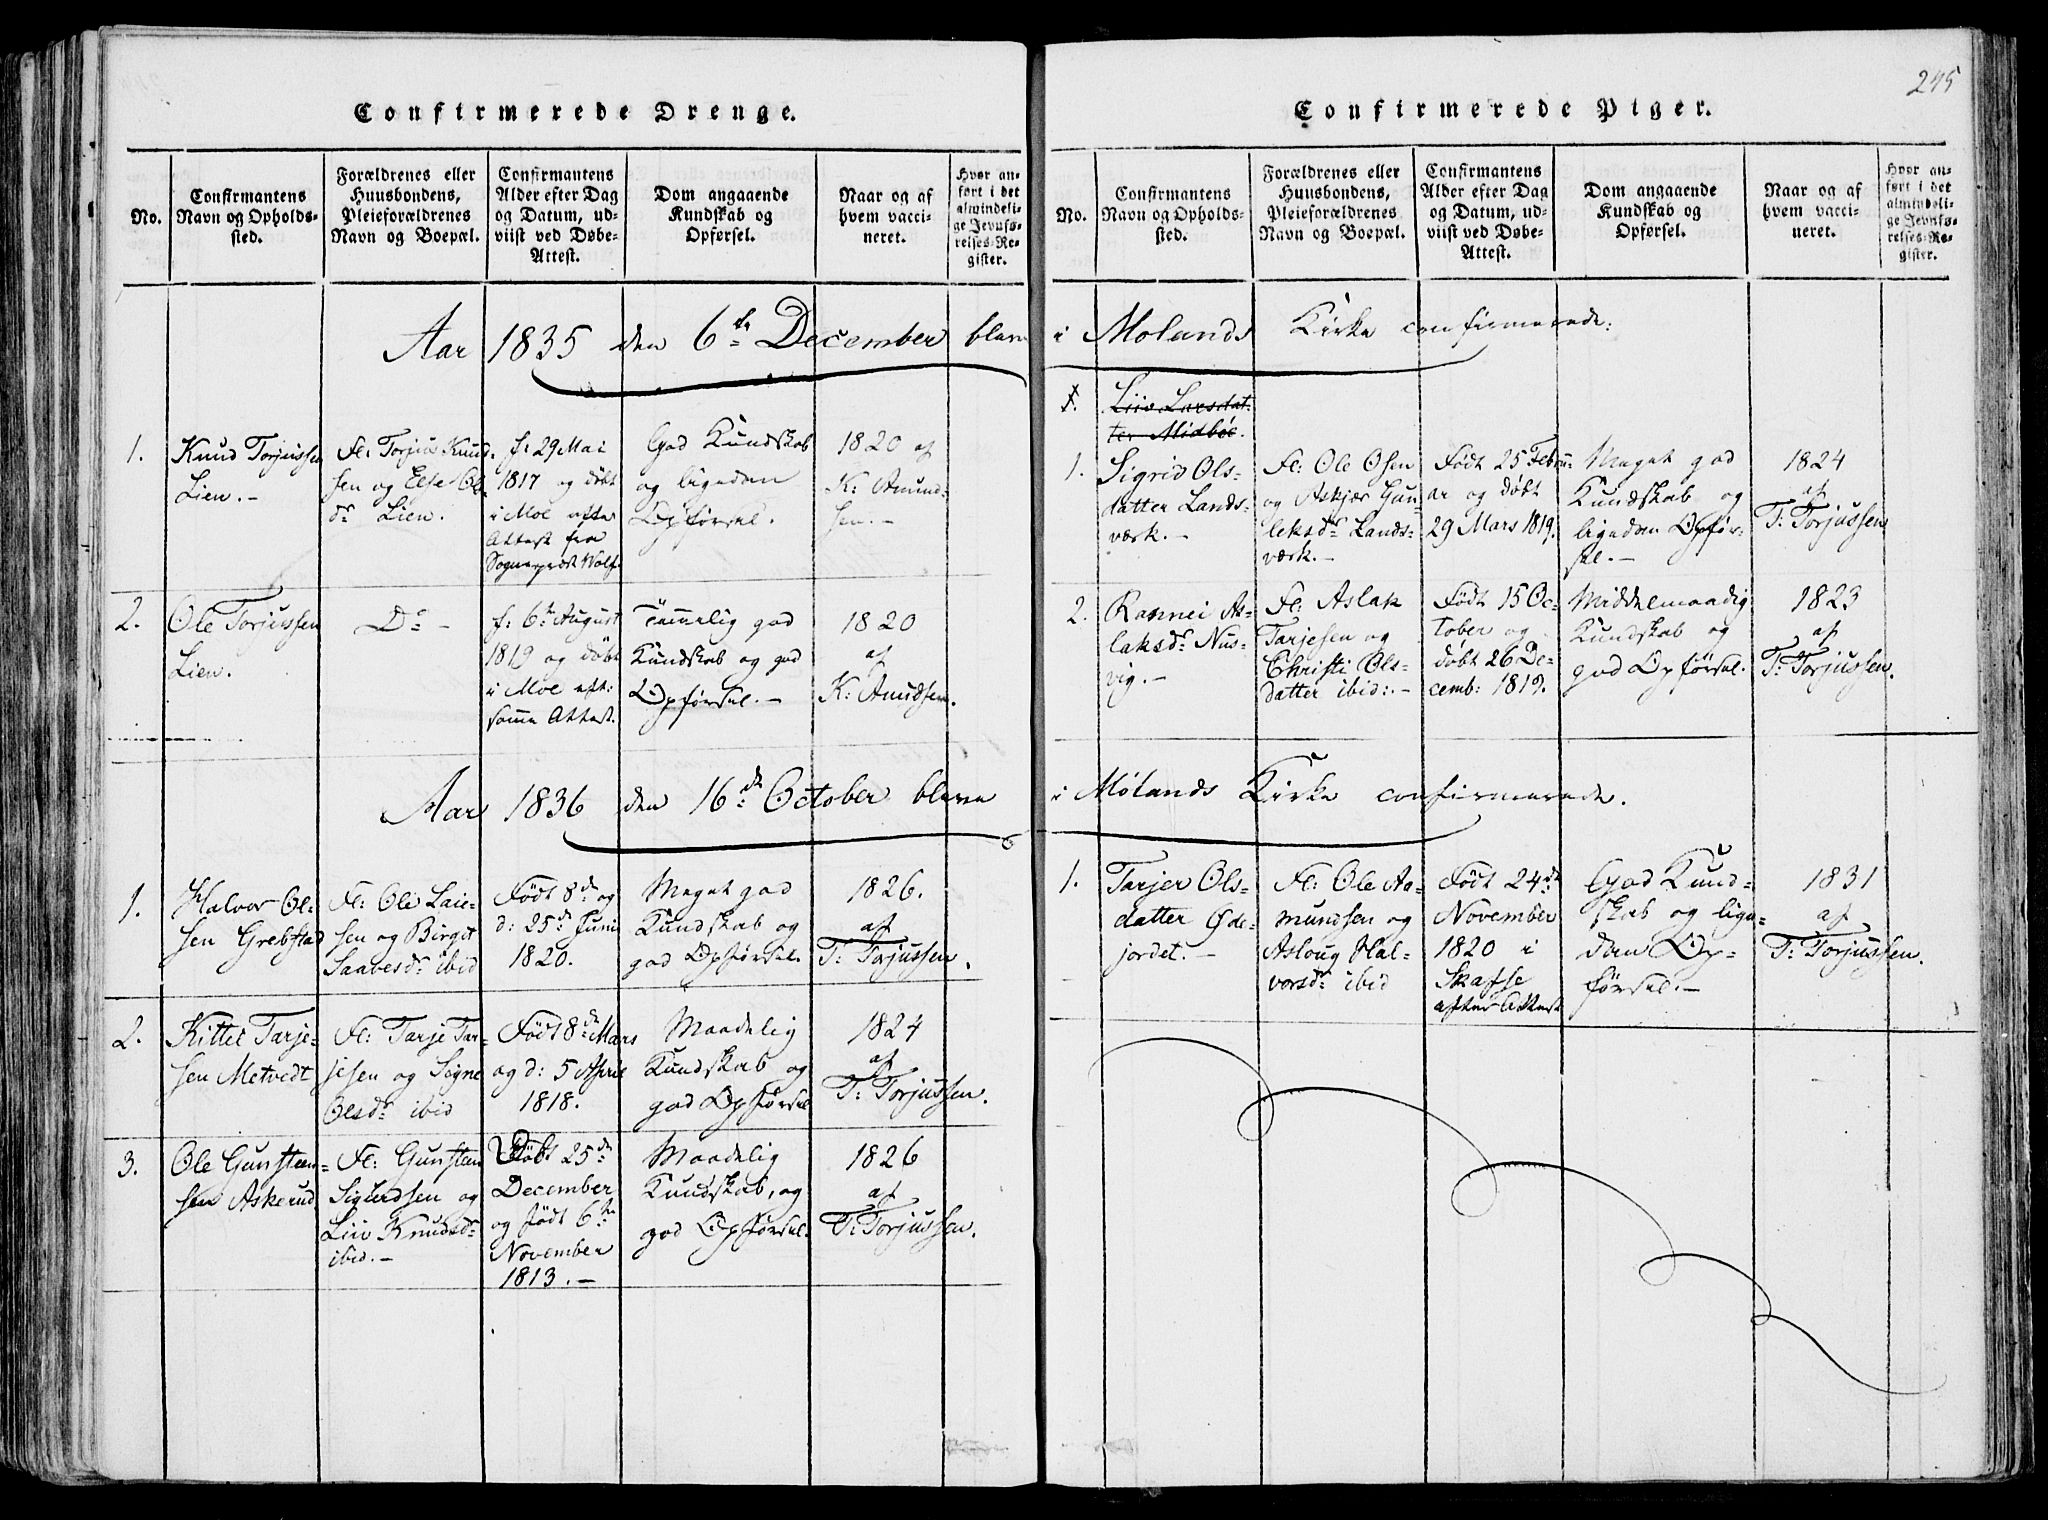 245
Confirmerede Drenge.
No.
Confirmantens
Navn og Opholds-
sted.
Forældrenes eller
Huusbondens,
Pleieforældrenes
Navn og Boepæl.
Confirmantens
Alder efter Dag
og Datum, ud-
viist ved Døbe-
Attest.
Dom angaaende
Kundskab og
Opførsel.
Naar og af
hvem vacci-
neret.
Hvor an-
ført i det
almindeli-
ge Jevnfø-
relses-Re-
gister.
Aar 1835 den 6te December bleve
1.
Knud Torjussen
Lien.-
Fl: Torjus Knud-
sen og Else Ols-
dr Lien.
f: 29 Mai
1817 og døbt
i Moe efter
Attest fra
Sognepræst Wolf.
God Kundskab
og ligedan
Opførsel.
1820 af
K: Amund-
sen.-
2.
Ole Torjussen
Lien.
Do -
f: 6te August
1819 og døbt
i Moe eft:
samme Attest.
Temmelig god
Kundskab og god
Opførsel.-
1820
af
K: Amudsen.
Aar 1836 den 16de October bleve
1.
Halvor Ol-
sen Grebstad
Fl: Ole
sen og Birgit
Saavesdr ibid
Født 8de og
d: 25de Juni
1820.
Meget god
Kundskab og
god Opførsel.
1826.
af
T: Torjussen.
2.
Kittel Tarje-
sen Metvedt
Fl: Tarje Tar-
jesen og Signe
Olsdr ibid
Født 8de Mars
og d: 5 April
1818.
Maadelig
Kundskab og
god Opførsel
1824
af
T: Torjussen.
3.
Ole Gunsteen-
sen Askerud
Fl: Gunsteen
Sigurdsen og
Liiv Knudsdr
ibid.-
Døbt 25de
December
og født 6te
November
1813.-
Maadelig
Kundskab, og
god Opførsel.
1826
af
T: Torjussen.
Confirmerede Piger.
No.
Confirmantens
Navn og Opholds-
sted.
Forældrenes eller
Huusbondens,
Pleieforældrenes
Navn og Boepæl.
Confirmantens
Alder efter Dag
og Datum, ud-
viist ved Døbe-
Attest.
Dom angaaende
Kundskab og
Opførsel.
Naar og af
hvem vacci-
neret.
Hvor an-
ført i det
almindeli-
ge Jevnfø-
relses-Re-
gister.
i Molands Kirke confirmerede:
1.
Liiv Larsdat-
ter Midbøe.
1.
Sigrid Ols-
datter Lands-
værk.-
Fl: Ole Osen
og Askjær Gun-
leksdr Lands-
værk.-
Født 25 Febru-
ar og døbt
29 Mars 1819.
Meget god
Kundskab og
ligedan Opfør-
sel.-
1824
af
T: Torjussen
2.
Rannei As-
laksdr Nus-
vig.-
Fl: Aslak
Tarjesen og
Christi Ols-
datter ibid:.-
Født 15 Oc-
tober og
døbt 26 De-
cemb: 1819.
Middelmaadig
Kundskab og
god Opførsel.
1823
af
T: Torjussen.
i Mølands Kirke confirmerede.
1.
Tarjer Ols-
datter Øde-
jordet.-
Fl: Ole Aa-
mundsen og
Asloug Hal-
vorsdr ibid
Født 24de
November
1820 i
Skafse
efter Attest
God Kund-
skab og lige-
dan Op-
førsel.-
1831
af
T: Torjussen.